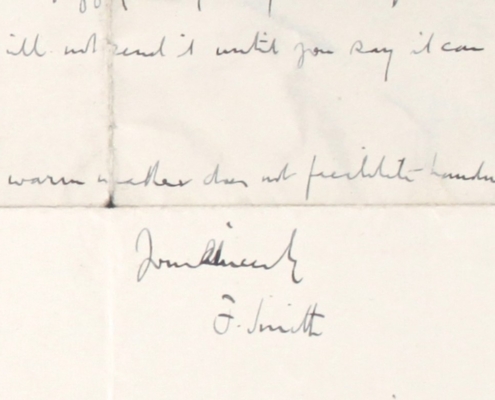 ill not send it until you say it can
warm weather does not facilitate
Yours Sincerely
F. Smith